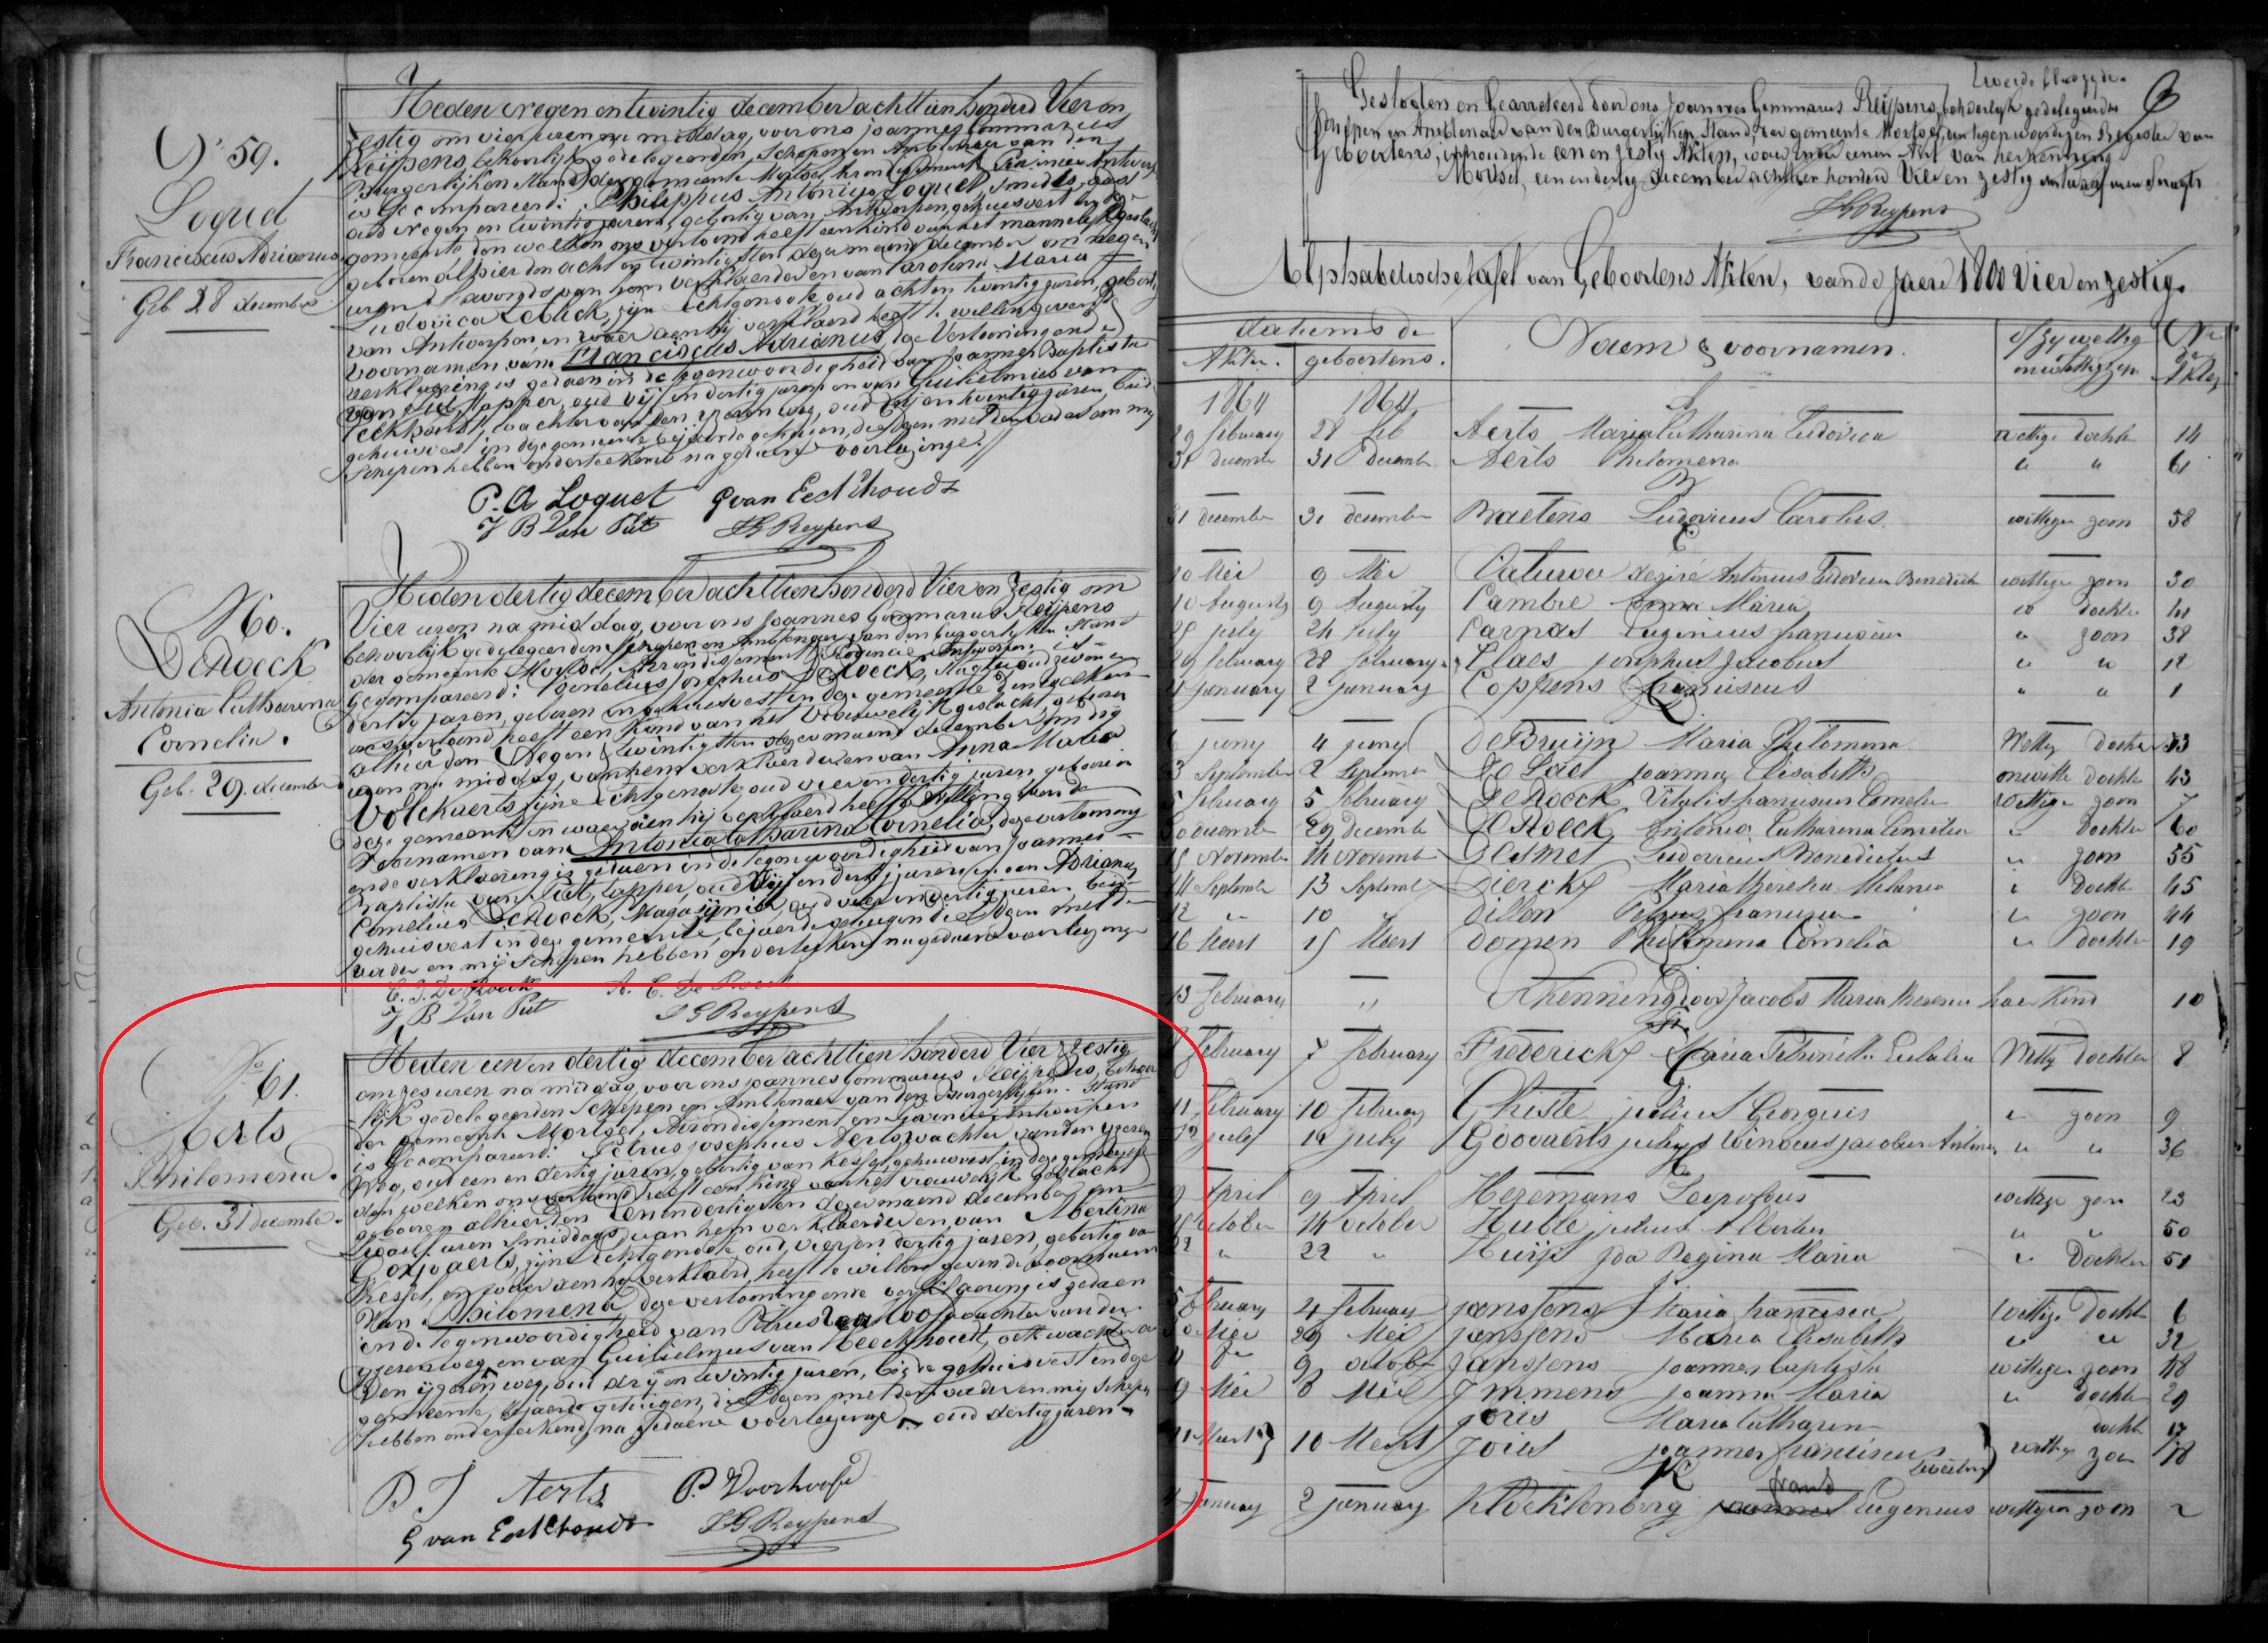 N° 59.
Loquet
Franciscus Adrianus
Geb. 28 december
Heden negen en twintig december achttien honderd Vier en
zestig om vier uren na middag, voor ons Joannes Gommarus
Reijpens, behoorlijk gedelegeerden Schepen en Ambtenaer van den
Burgerlijken Stand der gemeente Mortsel,
is Gecompareerd: Philippus Antonius Loquet, smid
oud negen en twintig jaren, geboortig van Antwerpen, gehuisvest in deze
gemeente den welken ons vertoond heeft een kind van het mannelijk geslacht
geboren alhier den acht en twintigsten dezer maend december om negen
uren s'avonds van hem verklaerder en van Carolina Maria
Ludovica Lebuck, zijn Echtgenoote oud acht en twintig jaren, geboortig
van Antwerpen, en waer aen hij verklaerd heeft te willen geven de
voornamen van Franciscus Adrianus, deze Vertooning ende
verklaering is gedaen in de tegenwoordigheid van Joannes Baptista
van Put, tapper, oud vijf en dertig jaren en van Guilielmus van
Eeckhoudt, wachter van den yzeren weg, oud drij en twintig jaren, beide
gehuisvest in deze gemeente bejaerde getuigen, die dezen met den vader en mij
Schepen hebben onderteekend na gedaene voorlezinge.
P. A Loquet G van Eeckhoudt
J B Van Put J G Reypens
N° 60.
DeRoeck
Antonia Catharena
Cornelia.
Geb. 29. december
Heden dertig december achttien honderd Vier en Zestig om
Vier uren na middag, voor ons Joannes Gommarus Reijpens
behoorlijk gedelegeerden Schepen en Ambtenaer van den burgerlyken Stand
der gemeente Mortsel, Arrondissement Provencie Antwerpen, is
Gecompareerd: Cornelius Josephus DeRoeck, oud zeven en
dertig jaren, geboren en gehuisvest in deze gemeente den welken
ons vertoond heeft een Kind van het Vrouwelijk geslacht, geboren
alhier den Negen en twintigsten dezer maend december om drij
uren na middag, van hem verklaerder en van Anna Maria
Volckaerts zijne Echtgenoote, oud vier en dertig jaren, geboren in
deze gemeente en waer aen hij verklaerd heeft te willen geven de
Voornamen van Antonia Catharina Cornelia, deze vertooning
ende verklaering is gedaen in de tegenwoordigheid van Joannes
Baptista van Put, tapper, oud Vijf en dertig jaren en van Adrianus
Cornelius DeRoeck, Magazijnier, oud vier en dertig jaren, beide
gehuisvest in deze gemeente, bejaerde getuigen die dezen met de
vader en mij Schepen hebben onderteekend na gedaene voorlezinge
C. J. De Roeck A. C. De Roeck
J B Van Put J G Reypens
N° 61.
Aerts
Philomena.
Geb. 31 December.
Heden een en dertig december achttien honderd Vier en zestig
om zes uren na middag, voor ons Joannes Gommarus Reijpens, behoor
lijk gedelegeerden Schepen en Ambtenaer van den Burgerlijken Stand
der gemeente Mortsel, Arrondissement en Provencie Antwerpen
is Gecompareerd: Petrus Josephus Aerts, wachter van den yzeren
weg, oud een en dertig jaren, geboortig van Kessel, gehuisvest in deze gemeente
den welken ons vertoond heeft een kind van het vrouwelijk geslacht
geboren alhier den Eenendertigsten dezer maend december om
twaelf uren smiddags, van hem verklaerder en van Albertina
Goovaerts, zijne Echtgenoote, oud, vier en dertig jaren, geboortig van
Kessel, en waer aen hij verklaerd heeft te willen geven de voornaem
Van Philomena, deze vertooning ende verklaering is gedaen
in de tegenwoordigheid van Petrus Voorhoof wachter van den
yzerenweg, en van Guilielmus van Eeckhoudt, ook wachter van
den ijzeren weg, oud drij en twintig jaren, beide gehuisvest in deze
gemeente, bejaerde getuigen, die dezen met den vader en mij Schepen
hebben onderteekend, na gedaene voorlezinge, oud dertig jaren
P J Aerts P. Voorhoof
G van Eeckhoudt J G Reypens
Tweede bladzyde.
Gesloten en Gearresteerd door ons Joannes Gommarus Reijpens, behoorlyk gedelegeerden
Schepen en Ambtenaer van den Burgerlijken Stand, der gemeente Mortsel, den tegenwoordigen Register van
Geboortens, inhoudende een en zestig Akten, waer onder eenen Akt van herkenning
Mortsel, een en dertig december achttien honderd Vier en zestig
J G Reypens
Alphabetische tafel van Geboortens Akten, van de jaere 1800 Vier en zestig.
datums de
Akten. geboortens. Naem & voornamen. N° de Akten
1864 1864 A
29 february 28 feb Aerts Maria Catharina Ludovica wettige dochter 14
31 december 31 december Aerts Philomena " " 61
B
31 december 30 december Baetens Ludovicus Carolus wettigen zoon 58
C
10 Mei 9 Mei Désiré Antonius Ludovicus Benedictus wettigen zoon 30
10 Augusty 9 Augusty Cambie Anna Maria " dochter 41
25 july 24 july Carpas Eugenius franciscus " zoon 38
29 february 28 february Claes josephus Jacobus " " 12
4 january 2 january Coppens franciscus " " 1
D
6 juny 4 juny DeBruijn Maria Philomena Wettig dochter 33
3 September 2 September Joanna Elisabeth onwette dochter 43
5 february 5 february DeRoeck Vitalis franciscus Cornelis Wettige zoon 7
30 december 29 december DeRoeck Antonia Catharena Cornelia " Dochter 60
15 November 14 November DeSmet Ludovicus Benedictus " zoon 55
14 September 13 September Dierckx Maria Theresia Melania " Dochter 45
12 " 10 " Dillen franciscus " zoon 44
16 Meert 15 Meert Domen Philomena Cornelia " Dochter 19
E
13 february " Erkenning door Jacobs Maria Theresia haer Kind 10
F
8 february 7 february Frederickx Maria Petronilla Eulalia Wettig dochter 8
G
11 february 10 february Ghiste julius Georguis " zoon 9
12 july 12 july Goovaerts Winocus jacobus Antonius " " 36
H
9 April 9 April Heremans Leopoldus wettige zoon 23
15 october 14 october Huble julius Albertus " " 50
22 " 22 " Huijs Ida Regina Maria " Dochter 51
J
5 february 4 february janssens Maria francisca Wettige Dochter 6
30 Mei 29 Mei janssens Maria Elisabeth " " 32
9 october Janssens joannes baptista wettigen zoon 48
9 Mei 8 Mei Jmmens joanna Maria " dochter 29
joris Maria Catharina docht 17
11 Meert 10 Meert Joris joannes franciscus wettige zoon 18
K
4 january 2 january Klocklenberg frans Eugenius wettigen zoon 2